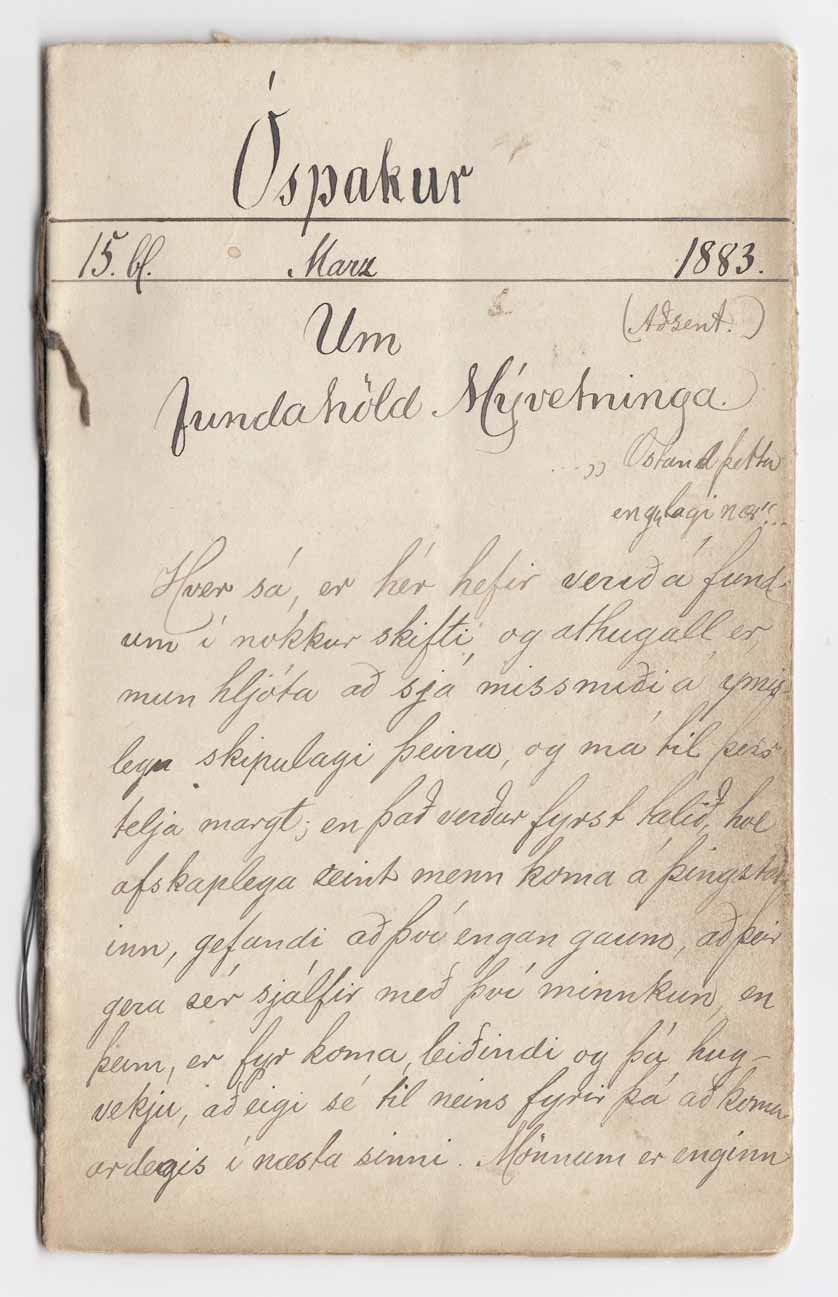 Óspakur
15. bl. Marz 1883.
Um (Aðsent.)
fundahöld Mývetninga.
... „Óstand þetta
engu lagi nær“...
Hver sá, er hér hefir verið á fund-
um í nokkur skifti, og athugall er,
mun hljóta að sjá missmiði á ýmis-
legu skipulagi þeirra, og má til þess
telja margt; en það verður fyrst talið, hve
afskaplega seint menn koma á þingstað-
inn, gefandi að því engan gaum, að þeir
gera sér sjálfir með því minnkun, en
þeim, er fyr koma, leiðindi og þá hug-
vekju, að eigi sé til neins fyrir þá að koma
ardegis í næsta sinni. Mönnum er enginn